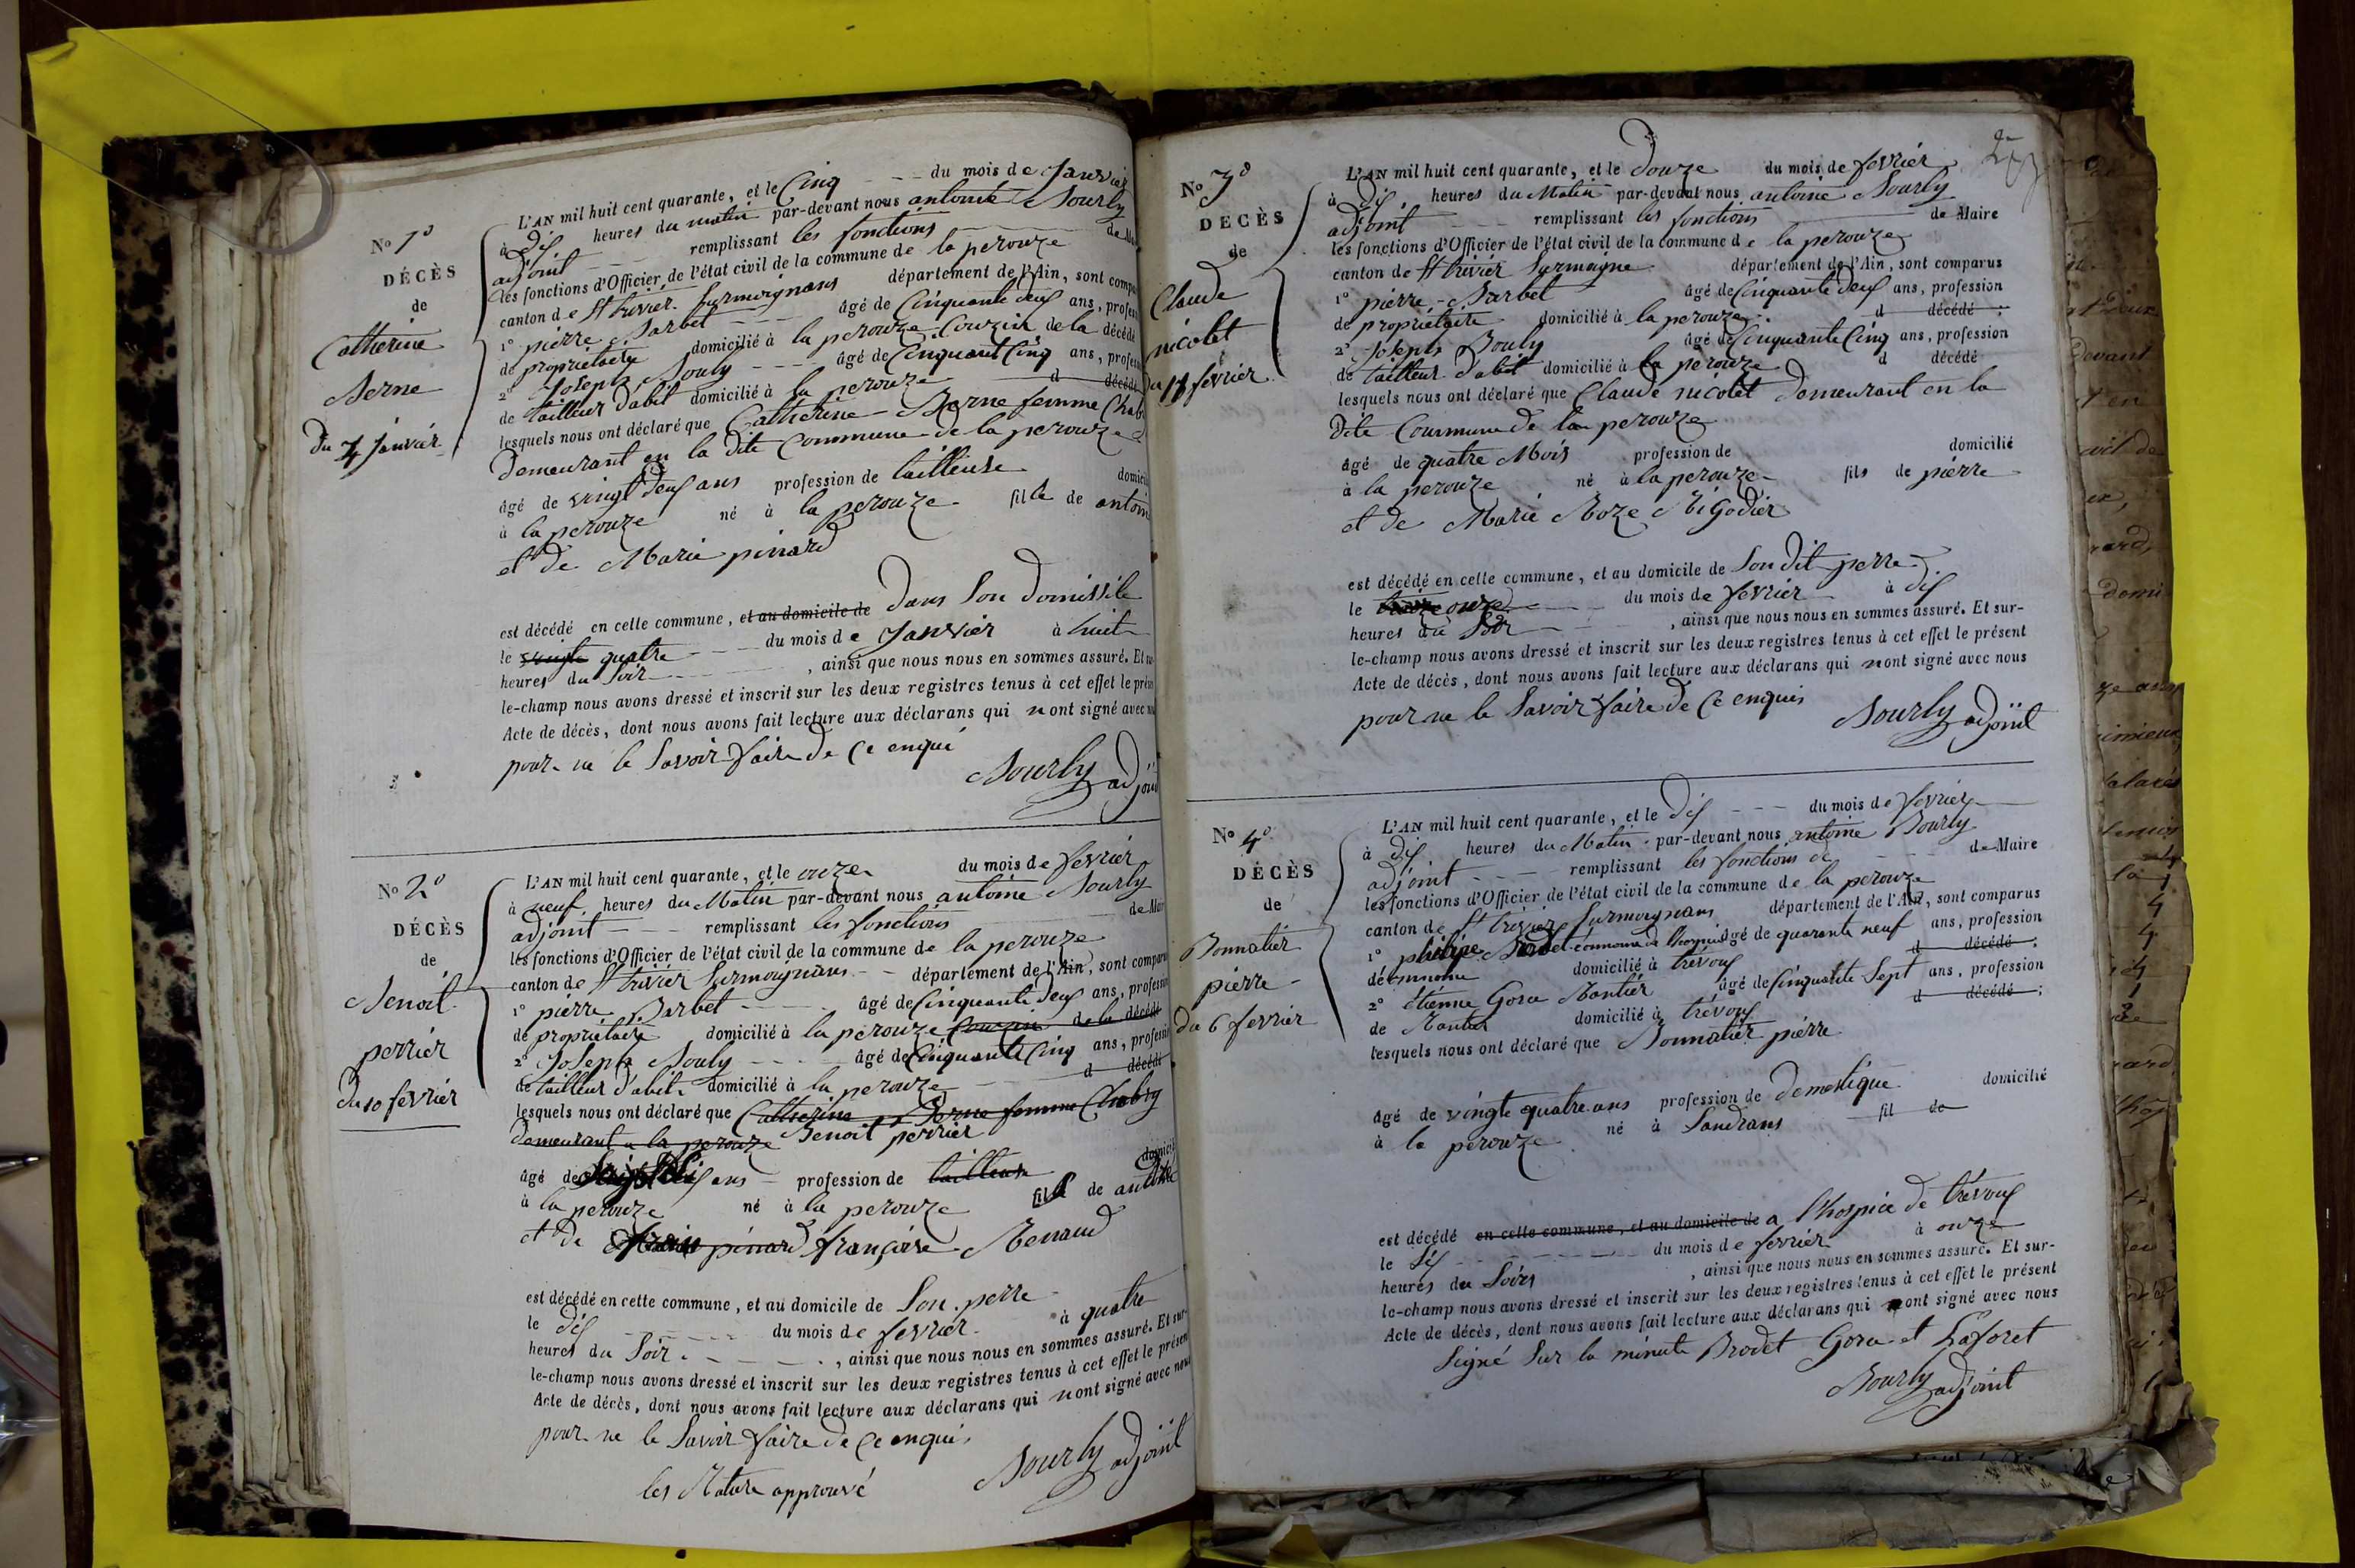 N.o 1o
DÉCÈS
de
Catherine
Berne
Du 4 Janvier
L'AN mil huit cent quarante, et le Cinq du mois de Janvier
à dix heures du matin par-devant nous antoine Bourly
adjoint remplissant les fonctions de
les fonctions d'Officier de l'état civil de la commune de la perouze
canton de St trivier Surmoignans département de l'Ain, sont
1o pierre Barbet âgé de Cinquante deux ans,
de propriétaire domicilié à la perouze Couzin de la décédé
2o Joseph Bouly âgé de Cinquante Cinq ans,
de tailleur d'abit domicilié à la perouze d décédé
lesquels nous ont déclaré que Catherine Berne femme
demeurant en la dite Commune de la perouze
âgé de vingt deux ans profession de tailleuse
à la perouze né à la perouze fille de
et de Marie pinard
est décédé en cette commune, et au domicile de dans Son Domissile
le vingte quatre du mois de Janvier à huit
heures du Soir, ainsi que nous nous en sommes assuré. Et
le-champ nous avons dressé et inscrit sur les deux registres tenus à cet effet le
Acte de décès, dont nous avons fait lecture aux déclarans qui nont signé avec
pour ne le Savoir faire de Ce enqui
Bourly adjoint
N.o 2o
DÉCÈS
de
Benoit
perrier
du 10 février
L'AN mil huit cent quarante, et le onze du mois de fevrier
à neuf heures du Matin par-devant nous antoine Bourly
adjoint remplissant les fonctions de
les fonctions d'Officier de l'état civil de la commune de la perouze
canton de St trivier Surmoignans département de l'Ain, sont
1o pierre Barbet âgé de Cinquante deux ans,
de propriétaire domicilié à la perouze Couzin de la décédé
2o Joseph Bouly âgé de Cinquante Cinq ans,
de tailleur d'abit domicilié à la perouze d décédé
lesquels nous ont déclaré que Catherine Berne femme Chabry
demeurant a la perouze Benoit perrier
âgé de ans profession de tailleuse
à la perouze né à la perouze fils de
et de pinard françoise Renaud
est décédé en cette commune, et au domicile de Son perre
le dix du mois de fevrier à quatre
heures du Soir, ainsi que nous nous en sommes assuré. Et sur-
le-champ nous avons dressé et inscrit sur les deux registres tenus à cet effet le
Acte de décès, dont nous avons fait lecture aux déclarans qui nont signé avec nous
pour ne le Savoir faire de Ce enquis
les Rature approuvé
Bourly adjoint
N.o 3o
DÉCÈS
de
Claude
nicolet
fevrier
L'AN mil huit cent quarante, et le Douze du mois de fevrier
à dix heures du Matin par-devant nous antoine Bourly
adjoint remplissant les fonctions de Maire
les fonctions d'Officier de l'état civil de la commune de la perouze
canton de St trivier Surmoigne département de l'Ain, sont comparus
1o pierre Barbet âgé de Cinquante deux ans, profession
de propriétaire domicilié à la perouze d décédé;
2o Joseph Bouly âgé de Cinquante Cinq ans, profession
de tailleur d'abit domicilié à la perouze d décédé
lesquels nous ont déclaré que Claude nicolet demeurant en la
dite Commune de la perouze
âgé de quatre Mois profession de domicilié
à la perouze né à la perouze fils de pierre
et de Marie Roze Rigodier
est décédé en cette commune, et au domicile de Son dit perre
le onze du mois de fevrier à dix
heures du Soir, ainsi que nous nous en sommes assuré. Et sur-
le-champ nous avons dressé et inscrit sur les deux registres tenus à cet effet le présent
Acte de décès, dont nous avons fait lecture aux déclarans qui nont signé avec nous
pour ne le Savoir faire de Ce enquis
Bourly adjoint
N.o 4o
DÉCÈS
de
Bonnatier
pierre
du 6 fevrier
L'AN mil huit cent quarante, et le dix du mois de fevrier
à dix heures du Matin par-devant nous antoine Bourly
adjoint remplissant les fonctions de de Maire
les fonctions d'Officier de l'état civil de la commune de la perouze
canton de St trivier Surmoignans département de l'Ain, sont comparus
1o âgé de quarante neuf ans, profession
domicilié à trevoux d décédé;
2o étienne Goru Rantier âgé de Cinquante Sept ans, profession
de Rantier domicilié à trévoux d décédé;
lesquels nous ont déclaré que Bonnatier pierre
âgé de vingte quatre ans profession de domestique domicilié
à la perouze né à Sandrans fil de
est décédé en cette commune, et au domicile de a l'hospice de trévoux
le Six du mois de fevrier à onze
heures du Soirs, ainsi que nous nous en sommes assuré. Et sur-
le-champ nous avons dressé et inscrit sur les deux registres tenus à cet effet le présent
Acte de décès, dont nous avons fait lecture aux déclarans qui ont signé avec nous
Signé Sur la minute Brodet Goru et Laforet
Bourly adjoint